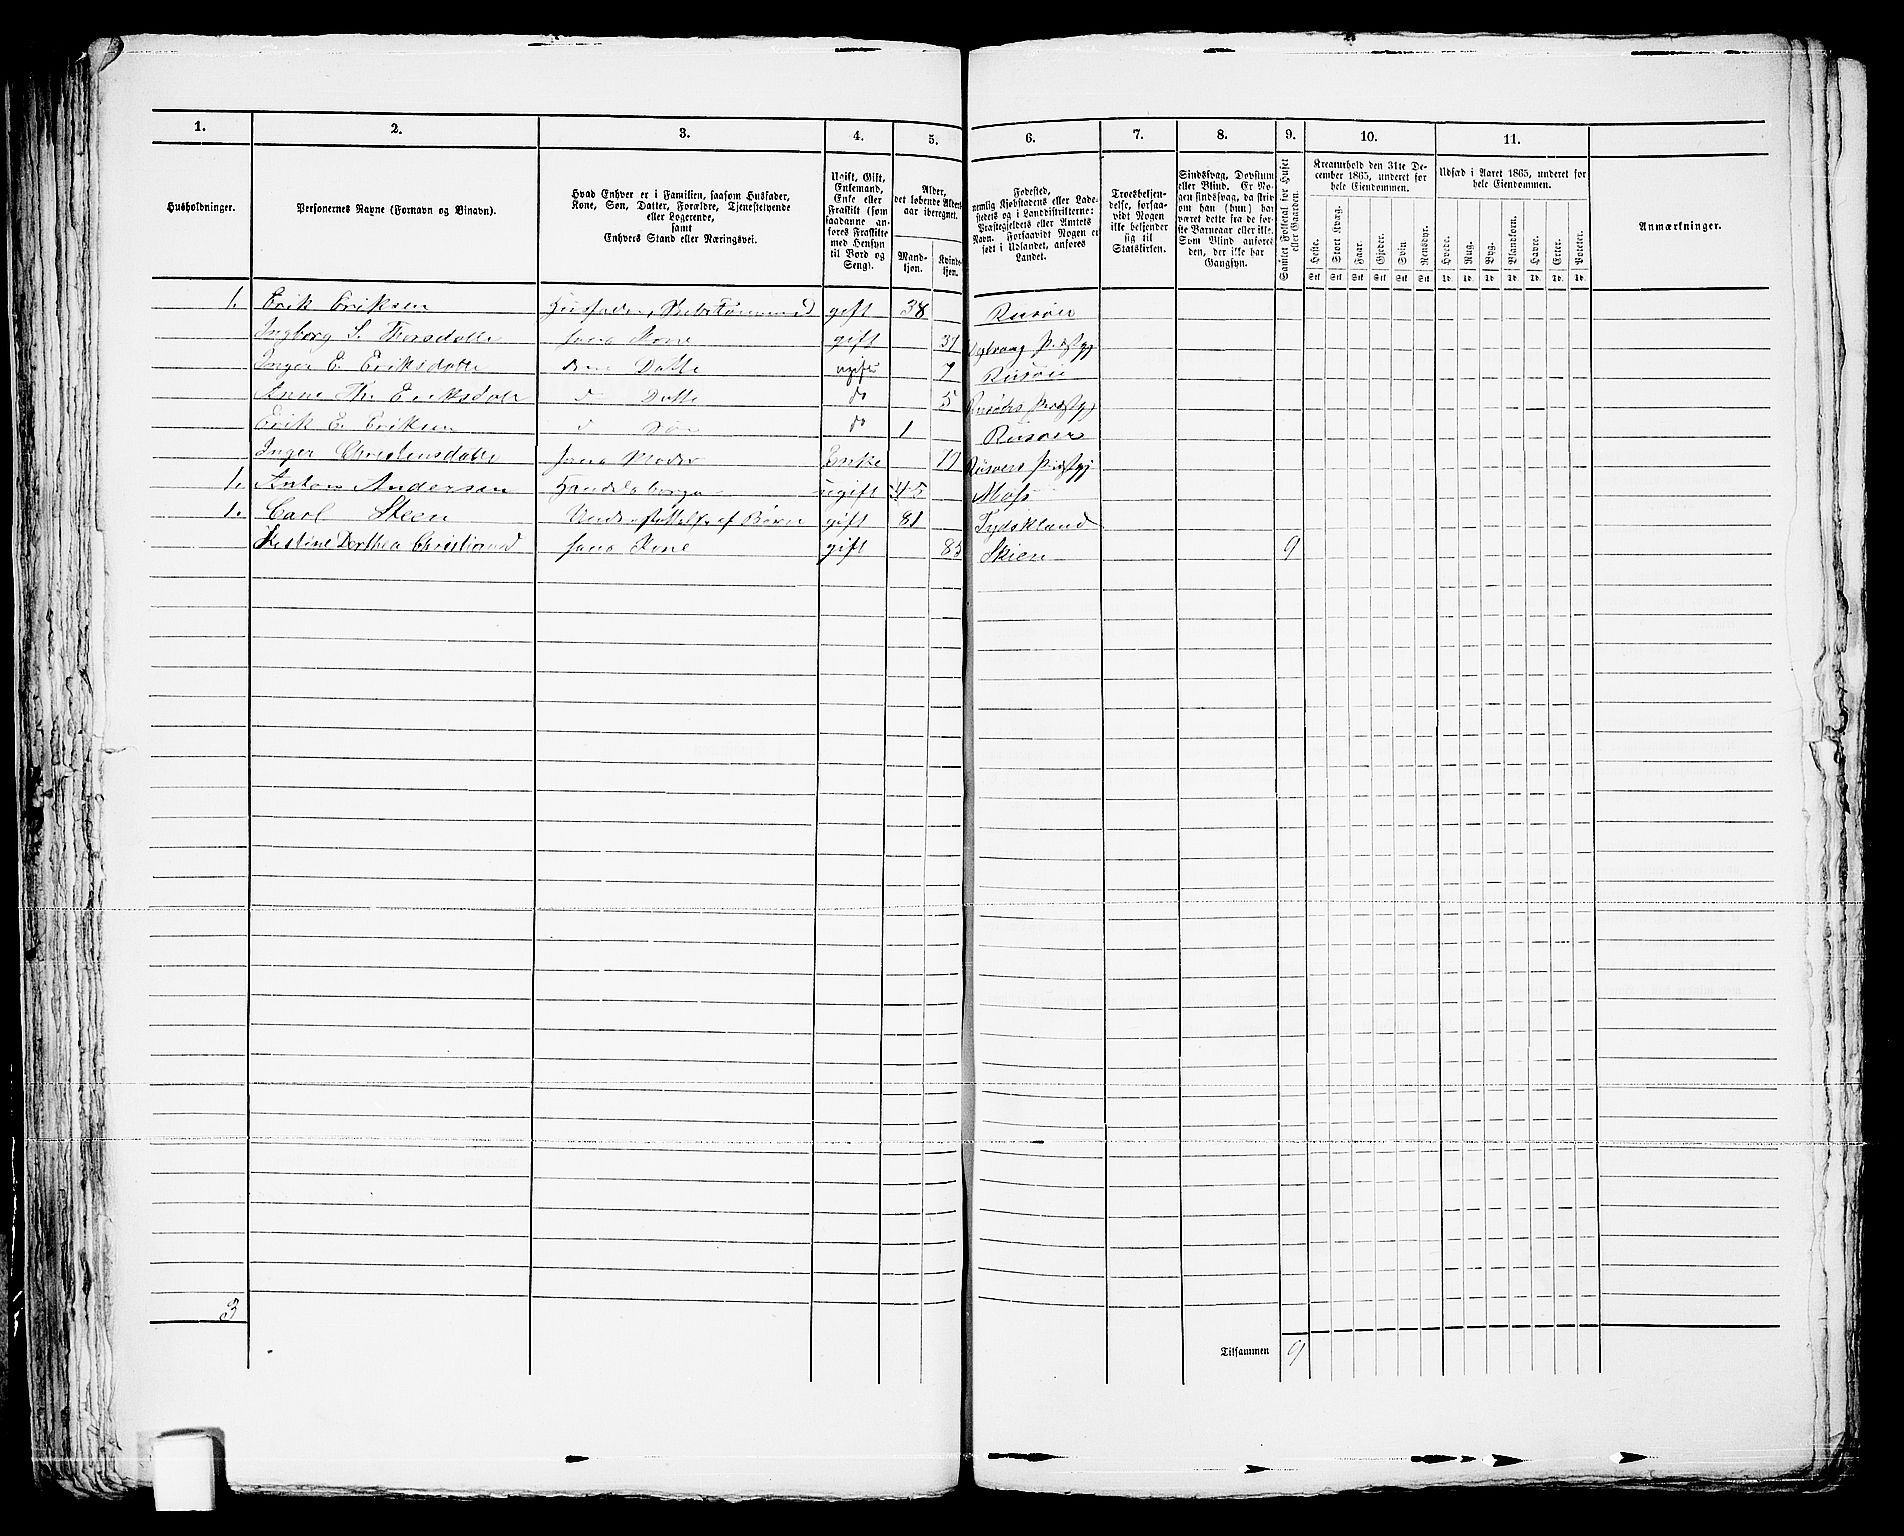 1. 2. 3. 4. 5. 6. 7. 8. 9. 10. 11.
Husholdninger.
Personernes Navne (Fornavn og Binavn).
Hvad Enhver er i Familien, saasom Husfader,
Kone, Søn, Datter, Forældre, Tjenestetyende
eller Logerende,
samt
Enhvers Stand eller Næringsvei.
Ugift, Gift,
Enkemand,
Enke eller
Fraskilt (som
saadanne an-
føres Fraskilte
med Hensyn
til Bord og
Seng).
Alder,
det løbende Alders-
aar iberegnet.
Mand-
kjøn.
Kvinde-
kjøn.
Fødested,
nemlig Kjøbstadens eller Lade-
stedets og i Landdistrikterne:
Præstegjeldets eller Amtets
Navn. Forsaavidt Nogen er
født i Udlandet, anføres
Landet.
Troesbekjen-
delse, forsaa-
vidt Nogen
ikke bekjender
sig til
Statskirken.
Sindssvag, Døvstum
eller Blind. Er No-
gen sindssvag, da skri-
ves om han (hun) har
været dette fra de før-
ste Barneaar eller ikke.
Som Blind anføres
den, der ikke har
Gangsyn.
Samlet Folketal for Huset
eller Gaarden.
Kreaturhold den 31te De-
cember 1865, underet for
hele Eiendommen.
Heste. Stort Kvæg. Faar. Gjeder. Svin Rensdyr.
Stk Stk Stk Stk Stk Stk
Udsæd i Aaret 1865, underet for
hele Eiendommen.
Hvede. Rug. Byg. Blandkorn. Havre. Erter. Poteter.
Td. Td. Td. Td. Td. Td. Td.
Anmærkninger.
1. Erik Eriksen Husfader, gift 38 Risöer
Ingborg S. Thorsdatte hans Kone gift 31
Inger E. Eriksdatte Datte ugift 7 Risöer
Anne Eriksdatr d Datte do 5 Risöers Præstgj
Erik E. Eriksen d Søn do 1 Risöer
Inger Christensdatte hans Moder Enke Risöers Præstgj
1. Anton Andersen ugift 45 Moss
1. Carl Steen Understøttelse af Børn gift 81 Tydskland
Dorthea hans Kone gift 83 Skien 9
3
Tilsammen 9